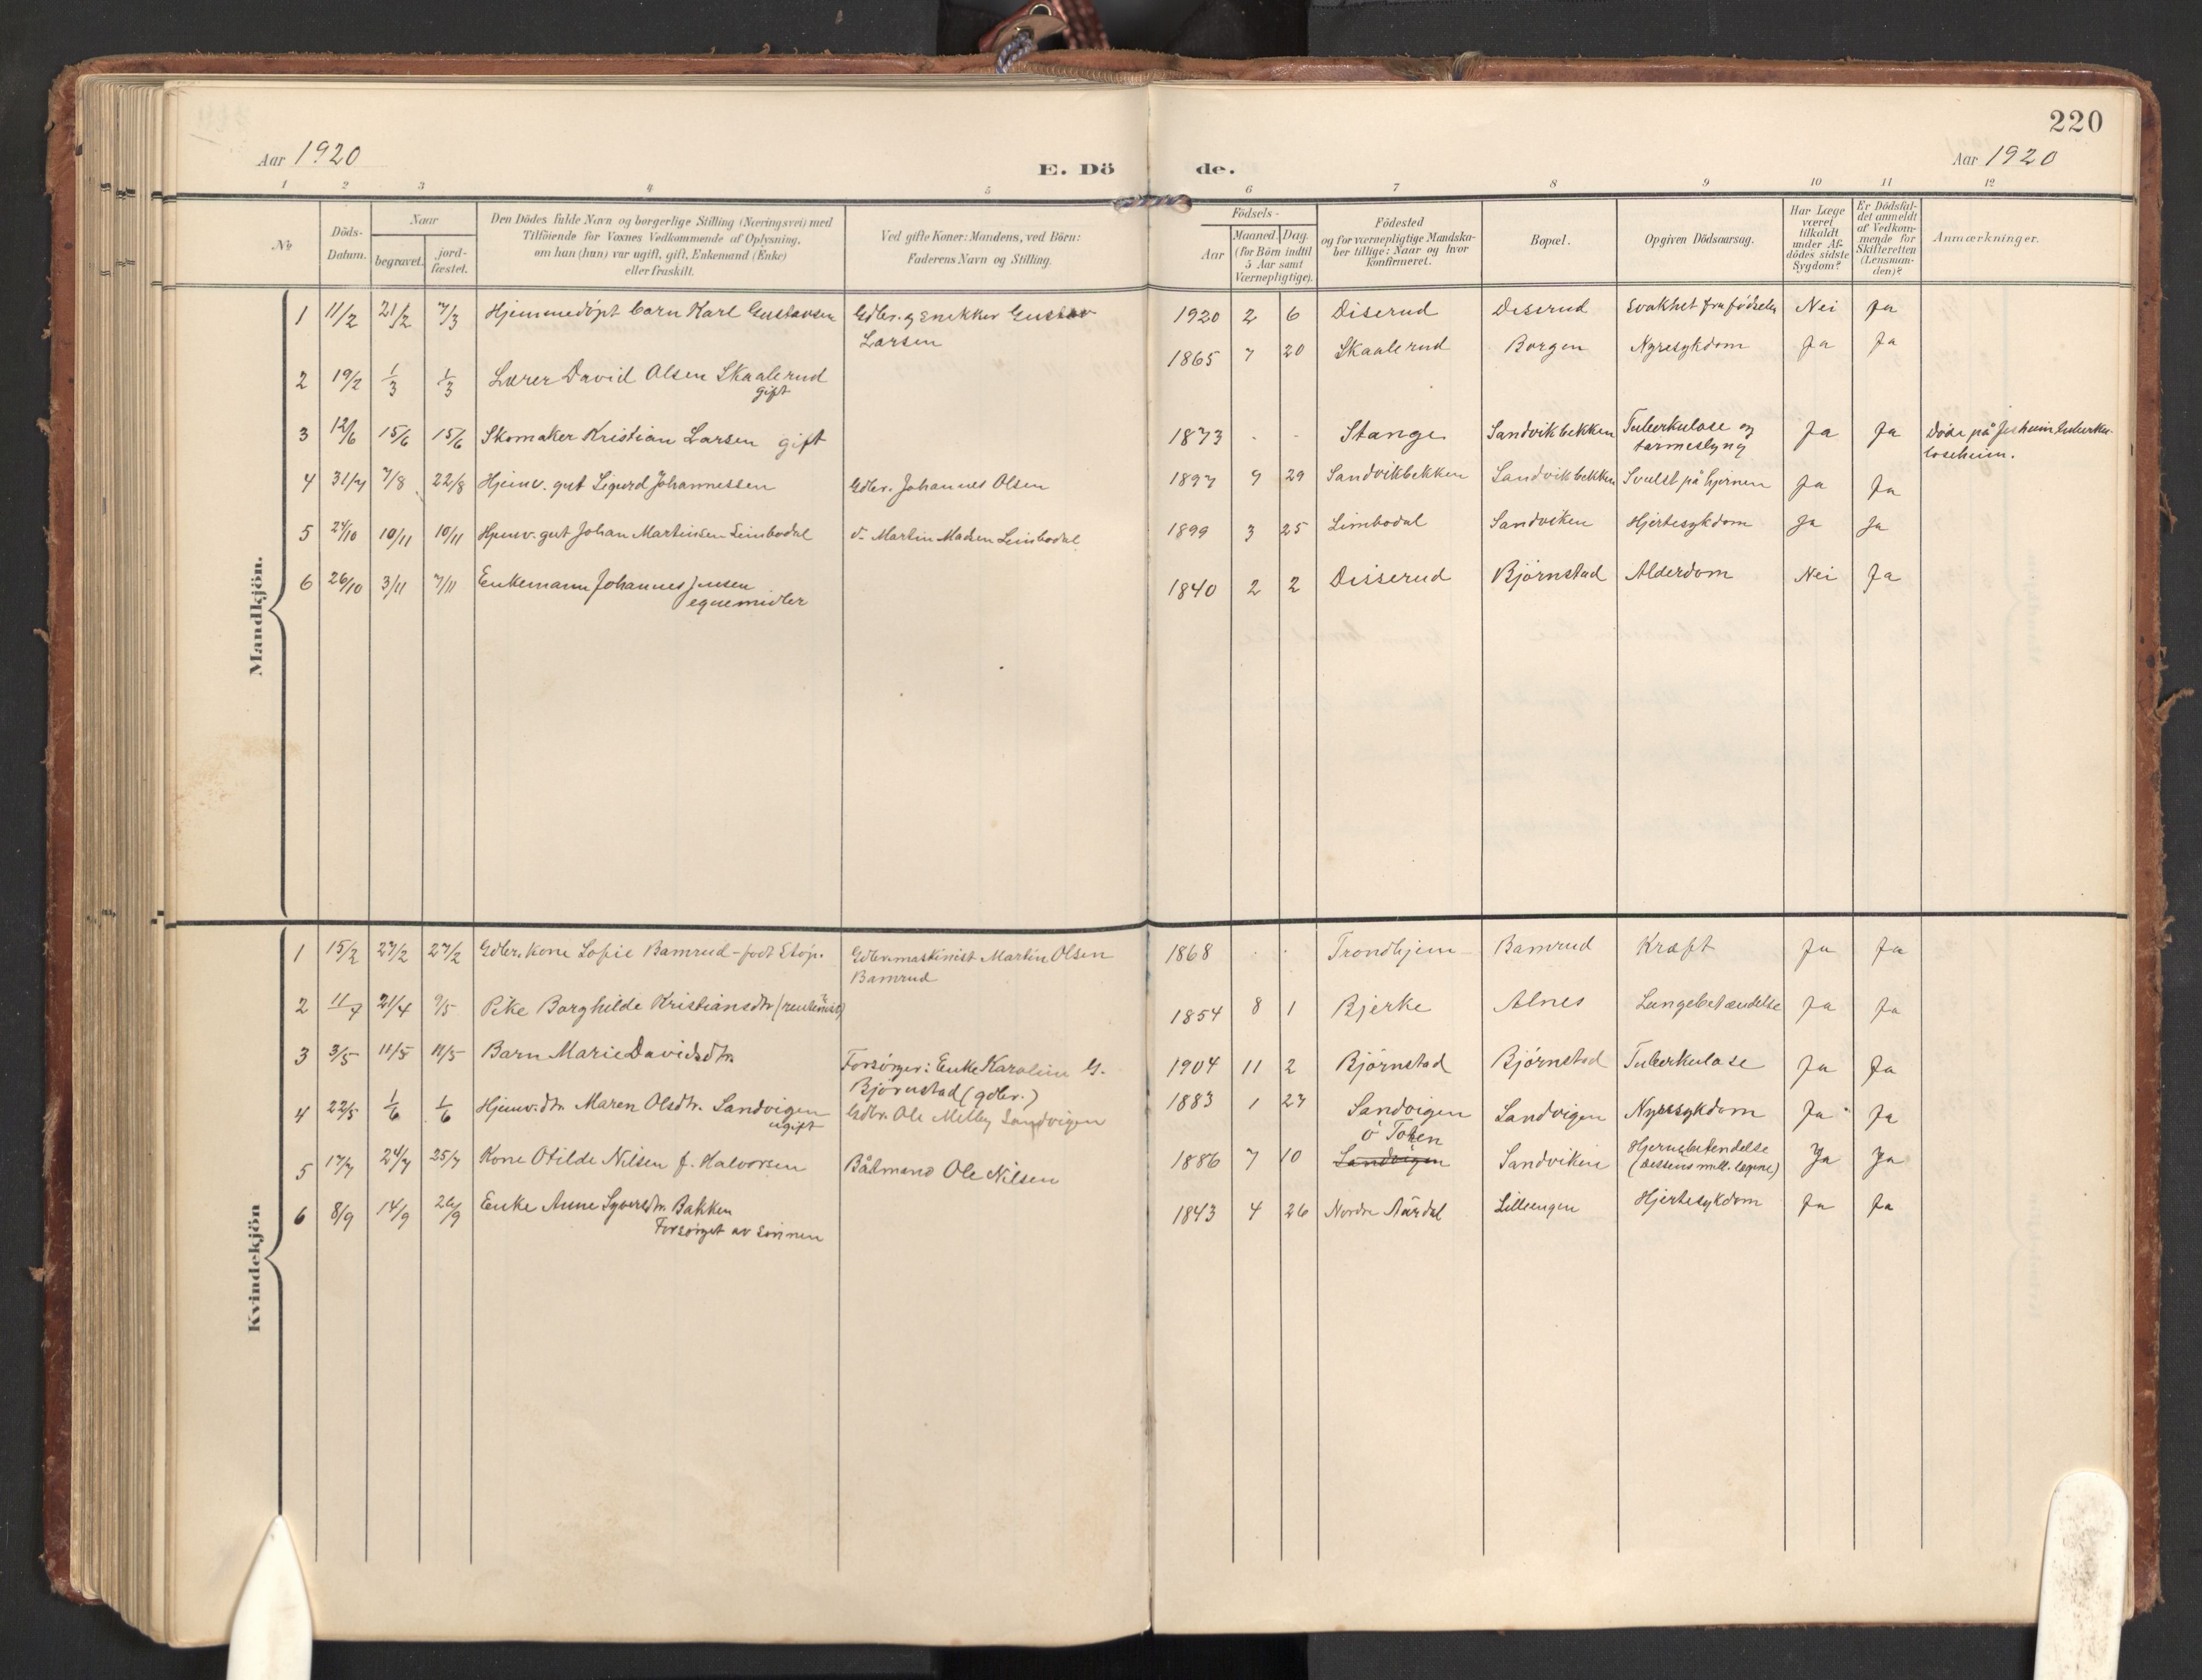 220
Aar 1920
E. Dö de.
Aar 1920
1 2 3 4 5 6 7 8 9 10 11 12
№
Döds-
Datum.
Naar
begravet.
jord-
fæstet.
Den Dödes fulde Navn og borgerlige Stilling (Næringsvei) med
Tilföiende for Voxnes Vedkommende af Oplysning,
om han (hun) var ugift, gift, Enkemand (Enke)
eller fraskilt.
Ved gifte Koner: Mandens, ved Börn:
Faderens Navn og Stilling.
Födsels-
Aar
Maaned. Dag.
(for Börn indtil
5 Aar samt
Værnepligtige).
Födested
og for værnepligtige Mandska-
ber tillige: Naar og hvor
konfirmeret.
Bopæl.
Opgiven Dödsaarsag.
Har Læge
været
tilkaldt
under Af-
dödes sidste
Sygdom?
Er Dödsfal-
det anmeldt
af Vedkom-
mende for
Skifteretten
(Lensman-
den)?
Anmærkninger.
Mandkjön.
1 11/2 21/2 7/3 Hjemmedöpt barn Karl Gustavsen Gdbr. og snekker Gustav 1920 2 6 Diserud Diserud Svakhet fra födselen Nei Ja
Larsen
2 19/2 1/3 1/3 Lærer David Olsen Skaalerud 1865 7 20 Skaalerud Borgen Nyresykdom Ja Ja
gift
3 12/6 15/6 15/6 Skomaker Kristian Larsen gift 1873 - - Stange Sandvikbekken Tuberkulose og Ja Ja Döde på Jesheim tuberku-
tarmeslyng loseheim.
4 31/7 7/8 22/8 Hjemv. gut Sigurd Johannessen Gdbr. Johannes Olsen 1897 9 29 Sandvikbekken Sandvikbekken Svulst på hjernen Ja Ja
5 24/10 10/11 10/11 Hjemv. gut Johan Martinsen Limbodal Martin Madsen Limbodal 1899 3 25 Limbodal Sandviken Hjertesykdom Ja Ja
6 26/10 3/11 7/11 Enkemann Johannes Jensen 1840 2 2 Disserud Björnstad Alderdom Nei Ja
egne midler
Kvindekjön
1 15/2 27/2 27/2 Gdbr. kone Sofie Bamrud - födt Stöp. Gdbr. maskinist Martin Olsen 1868 - - Trondhjem Bamrud Kræft Ja Ja
Bamrud
2 11/4 21/4 9/5 Pike Borghilde Kristiansdtr. 1854 8 1 Bjerke Alnes Lungebetændelse Ja Ja
3 3/5 11/5 11/5 Barn Marie Davidsdtr. Forsörger: Enke Karoline G. 1904 11 2 Björnstad Björnstad Tuberkulose Ja Ja
Björnstad (gdbr.)
4 22/5 1/6 1/6 Hjemv. dtr. Maren Olsdtr. Sandvigen Gdbr. Ole Melby Sandvigen 1883 1 27 Sandvigen Sandvigen Nyresykdom Ja Ja
ugift
ö Toten
5 17/7 24/7 25/7 Kone Otilde Nilsen f. Halvorsen Båtmand Ole Nilsen 1886 7 10 Sandvigen Sandviken Hjernebetendelse Ja Ja
6 8/9 14/9 26/9 Enke Anne Syversdtr. Bakken 1843 4 26 Nordre Aurdal Lilleengen Hjertesykdom Ja Ja
Forsörget av sönnen